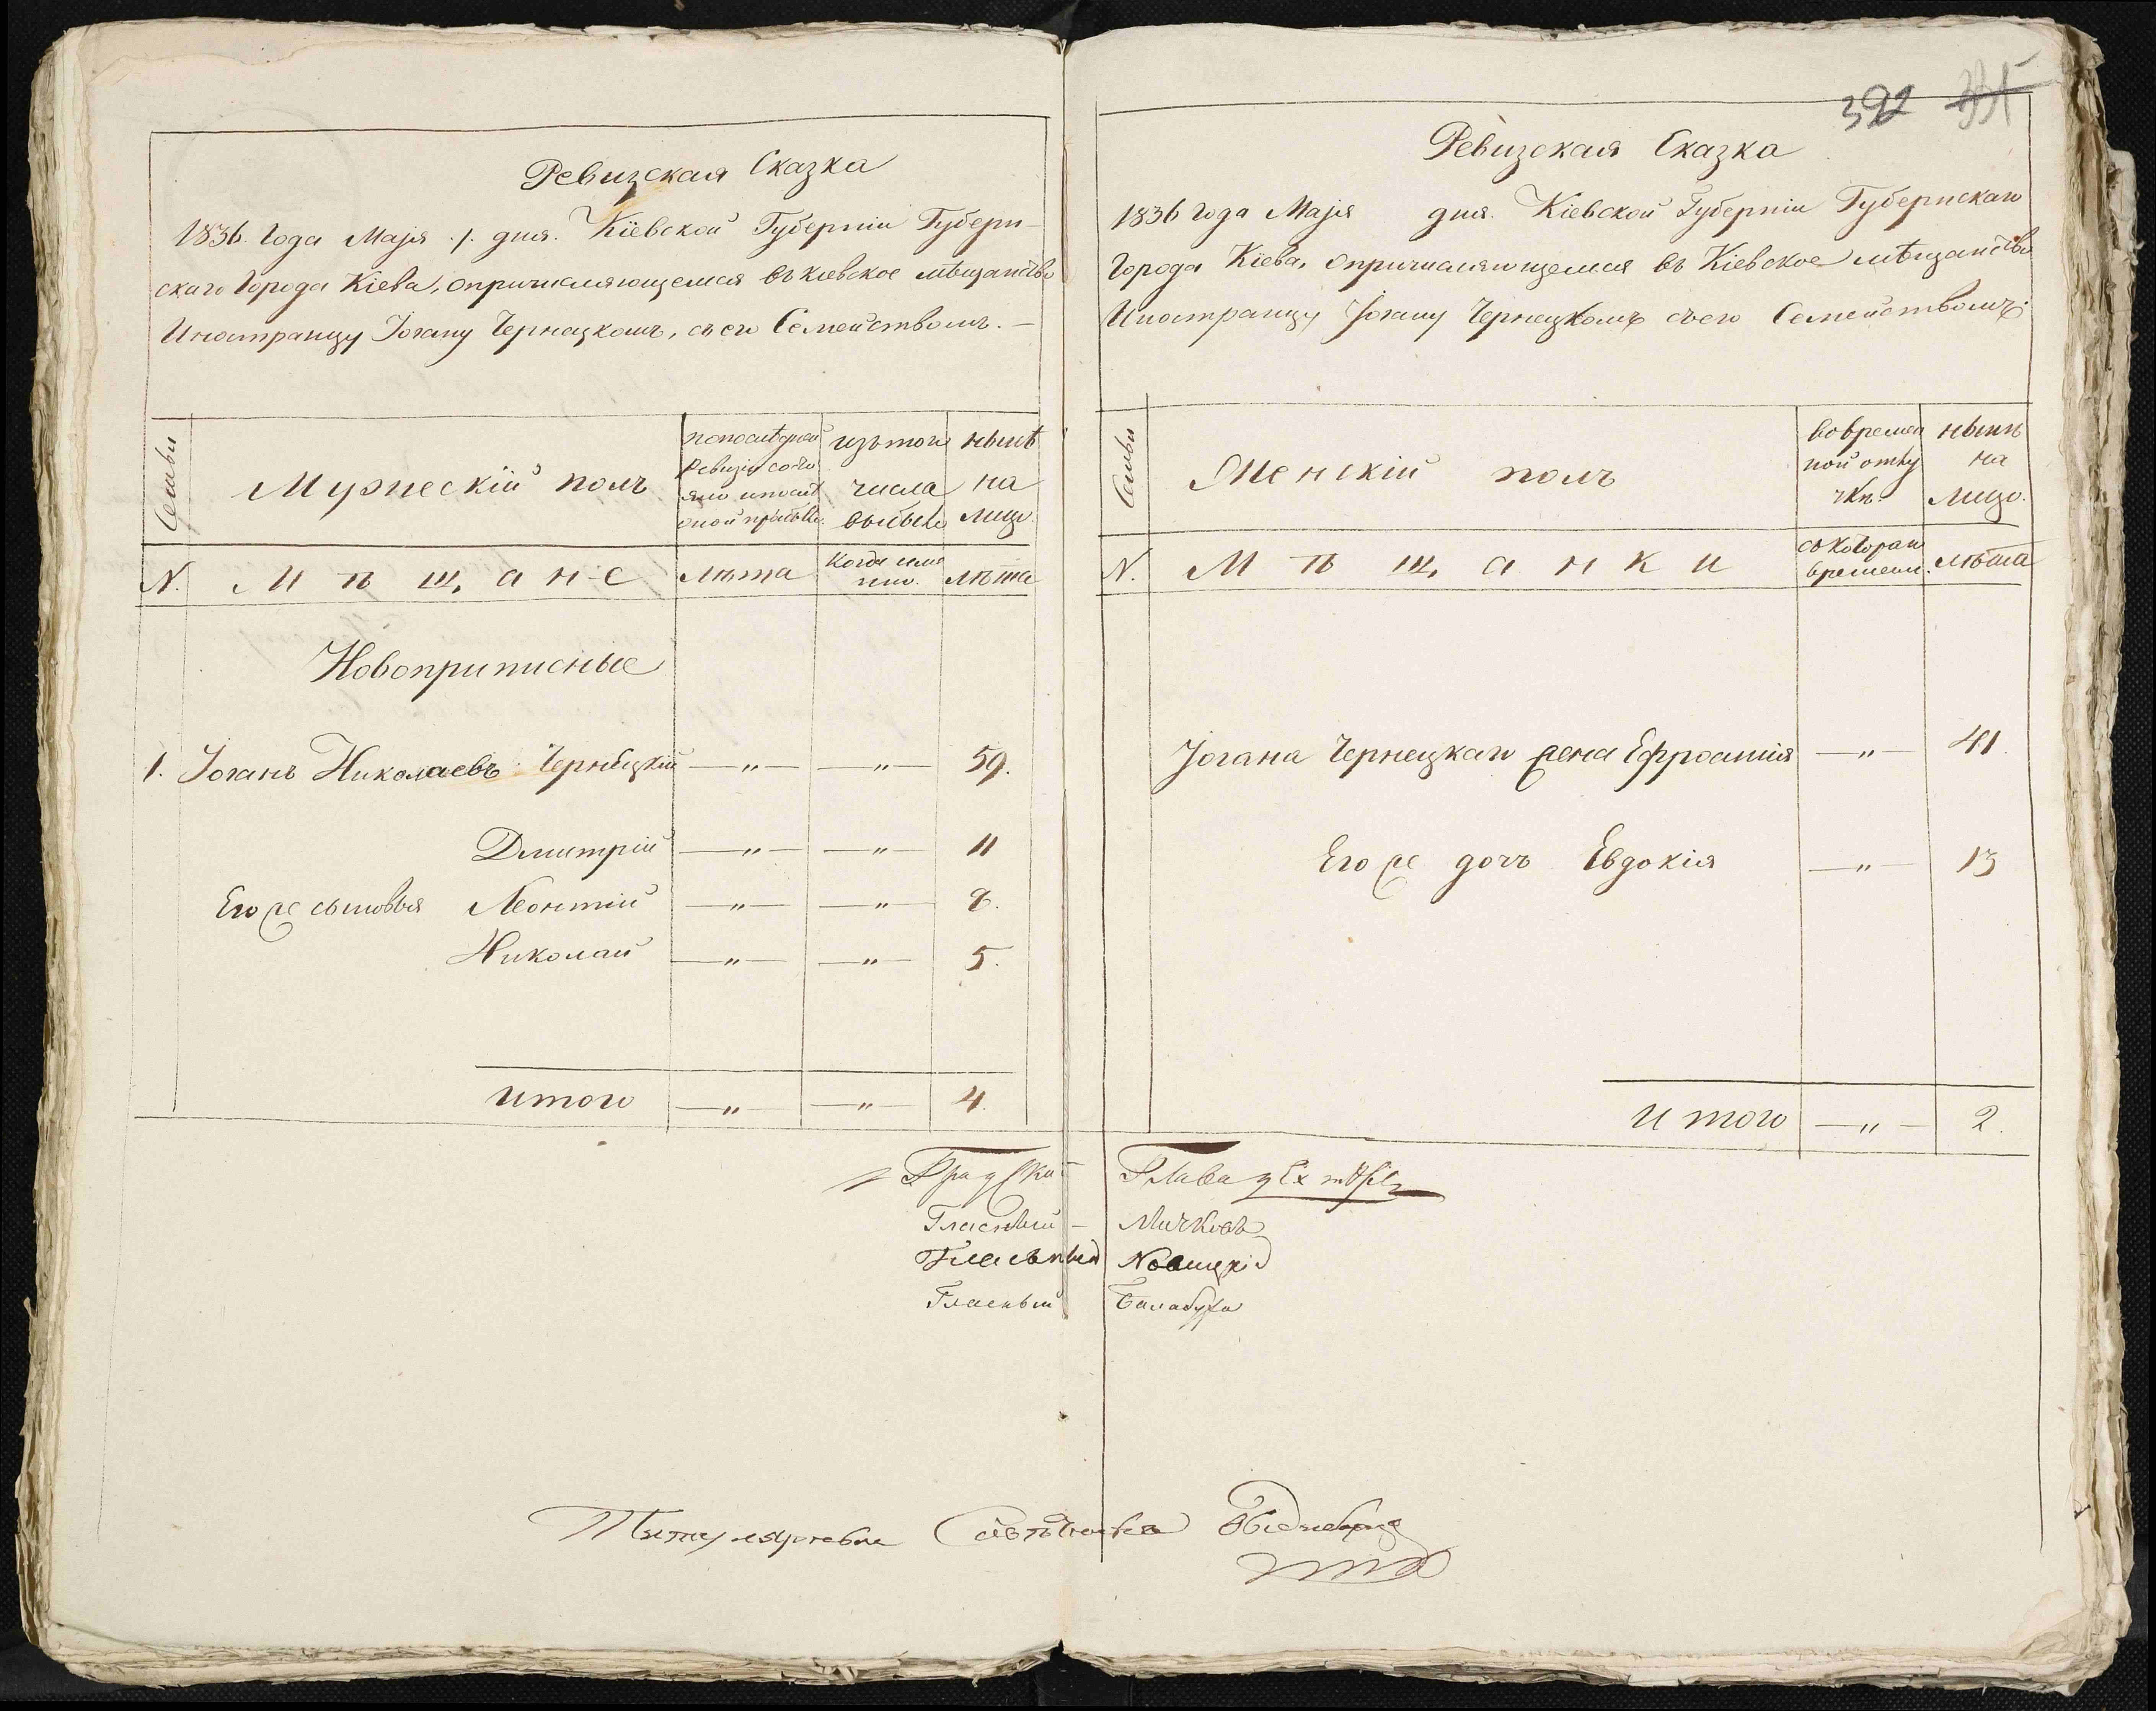 Ревизская Сказка
1836. Года Маія .1. дня. Кіевской Губерніи Губерн-
скаго Города Кіева, опричисляющемся въ киевское мѣщанство
Иностранцу Іогану Чернецкомъ, съ его Семействомъ. —
Семьи
Мужескій полъ
попослѣдней
Ревизіи состо
яло ипослѣ
оной прибыло
изътого
числа
выбыло
нынѣ
на
лицо.
N.
Мѣщане
лѣта
Когда имя
нно.
лѣта
Новоприписные
1. Іоганъ Николаевъ Чернецкій —"— —"— 59.
Дмитрій —"— —"— 11
Его же сыновья Леонтій —"— —"— 8.
Николай —"— —"— 5.
Итого —"— —"— 4.
392
Ревизская Сказка
1836 года Маія дня. Кіевской Губерніи Губернскаго
Города Кіева, опричисляющемся въ Кіевское мѣщанство
Иностранцу Іогану Чернецкомъ съего Семействомъ.
Семьи
Женскій полъ
вовремен
ной отлу
чкѣ.
нынѣ
на
лицо.
N.
Мѣщанки
съкотораго
времени.
лѣта
Іогана Чернецкаго жена Ефросинія —"— 41.
Его же дочь Евдокія —"— 13
Итого —"— 2.
Градской Глава
Гласный — Мичковъ
Гласный Новицкій
Гласный Балабуха